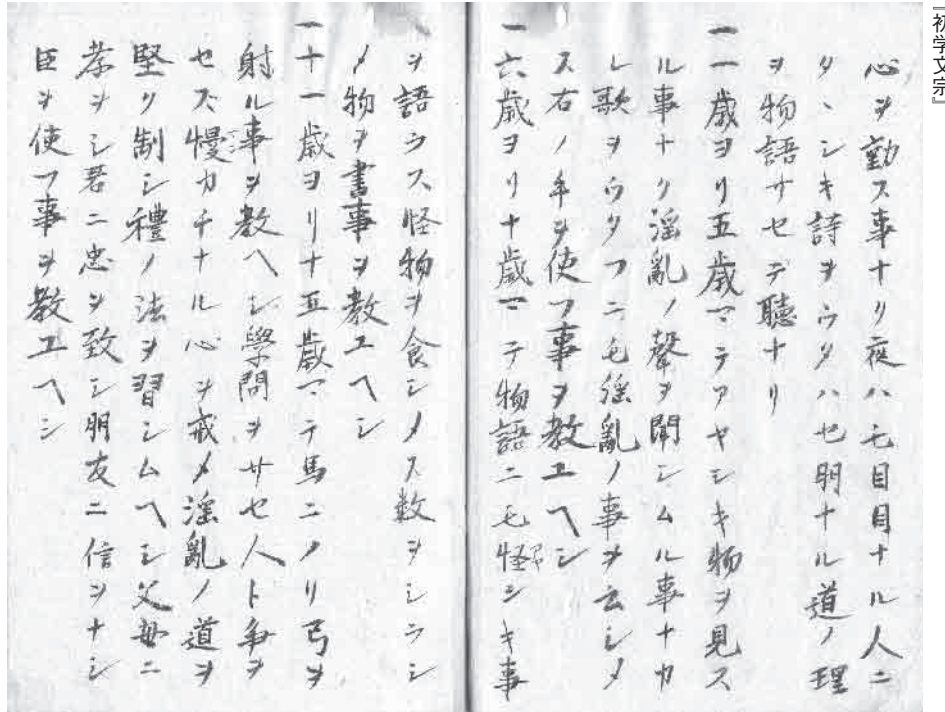 『初学文宗』
心ヲ動ス事ナリ夜ハモ目目ナル人ニ
タヽシキ詩ヲウタハセ明ナル道ノ理
ヲ物語サセデ聴ナリ
一一歳ヨリ五歳マテアヤシキ物ヲ見ス
ル事ナク淫亂ノ聲ヲ聞シムル事ナカ
レ歌ヲウタフニモ淫亂ノ事ヲ云シメ
ス右ノ手ヲ使フ事ヲ教エヘシ
一六歳ヨリ十歳マテ物語ニモ怪シキ事
ヲ語ラス怪物ヲ食シメス数ヲシラシ
メ物ヲ書事ヲ教エヘシ
一十一歳ヨリ十五歳マテ馬ニノリ弓ヲ
射ル事ヲ教ヘシ學問ヲサセ人ト争ヲ
セス慢カチナル心ヲ戒メ淫亂ノ道ヲ
堅ク制シ禮ノ法ヲ習シムヘシ父母ニ
孝ヲシ君ニ忠ヲ致シ朋友ニ信ヲナシ
臣ヲ使フ事ヲ教エヘシ